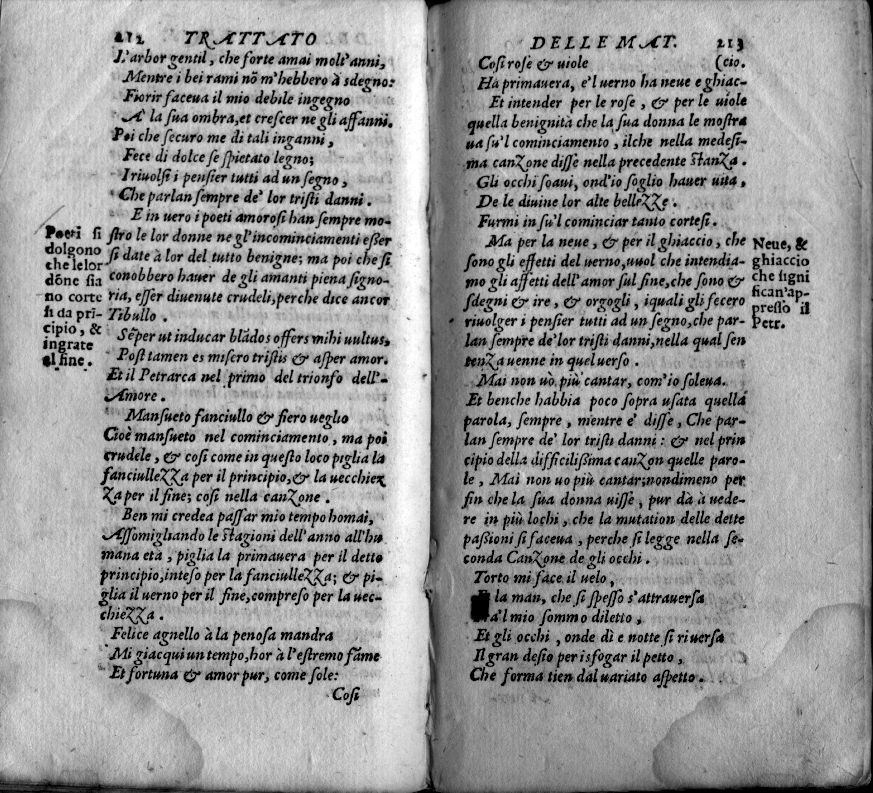 212 TRATTATO
L'arbor gentil, che forte amai molt'anni,
Mentre i bei rami nõ m'hebbero à sdegno:
Fiorir faceua il mio debile ingegno
A' la sua ombra, et crescer ne gli affanni.
Poi che securo me di tali inganni,
Fece di dolce se spietato legno;
I riuolsi i pensier tutti ad un segno,
Che parlan sempre de' lor tristi danni.
E in uero i poeti amorosi han sempre mo-
stro le lor donne ne gl'incominciamenti esser
si date à lor del tutto benigne; ma poi che si
conobbero hauer de gli amanti piena signo-
ria, esser diuenute crudeli, perche dice ancor
Tibullo.
Sẽper ut inducar blãdos offers mihi uultus,
Post tamen es misero tristis & asper amor.
Et il Petrarca nel primo del trionfo dell'-
Amore.
Mansueto fanciullo & fiero ueglio
Cioè mansueto nel cominciamento, ma poi
crudele, & cosi come in questo loco piglia la
fanciullezza per il principio, & la uecchiez
za per il fine; cosi nella canzone.
Ben mi credea passar mio tempo homai,
Assomigliando le stagioni dell'anno all'hu
mana età, piglia la primauera per il detto
principio, inteso per la fanciullezza; & pi-
glia il uerno per il fine, compreso per la uec-
chiezza.
Felice agnello à la penosa mandra
Mi giacqui un tempo, hor à l'estremo fãme
Et fortuna & amor pur, come sole:
Cosi
Poeti si
dolgono
che le lor
dõne sia
no corte
si da pri-
cipio, &
ingrate
al fine.
DELLE MAT. 213
Cosi rose & uiole (cio.
Ha primauera, e'l uerno ha neue e ghiac-
Et intender per le rose, & per le uiole
quella benignità che la sua donna le mostra
ua su'l cominciamento, ilche nella medesi-
ma canzone disse nella precedente stanza.
Gli occhi soaui, ond'io soglio hauer uita,
De le diuine lor alte bellezze.
Furmi in su'l cominciar tanto cortesi.
Ma per la neue, & per il ghiaccio, che
sono gli effetti del uerno, uuol che intendia-
mo gli affetti dell'amor sul fine, che sono &
sdegni & ire, & orgogli, i quali gli fecero
riuolger i pensier tutti ad un segno, che par-
lan sempre de' lor tristi danni, nella qual sen
tenza uenne in quel uerso.
Mai non uò più cantar, com'io soleua.
Et benche habbia poco sopra usata quella
parola, sempre, mentre e' disse, Che par-
lan sempre de' lor tristi danni: & nel prin
cipio della difficilissima canzon quelle paro-
le, Mai non uo più cantar; nondimeno per
fin che la sua donna uisse, pur dà à uede-
re in più lochi, che la mutation delle dette
passioni si faceua, perche si legge nella se-
conda Canzone de gli occhi.
Torto mi face il uelo,
la man, che si spesso s'attrauersa
l mio sommo diletto,
Et gli occhi, onde dì e notte si riuersa
Il gran desio per isfogar il petto,
Che forma tien dal uariato aspetto.
Neue, &
ghiaccio
che signi
fican'ap-
presso il
Petr.